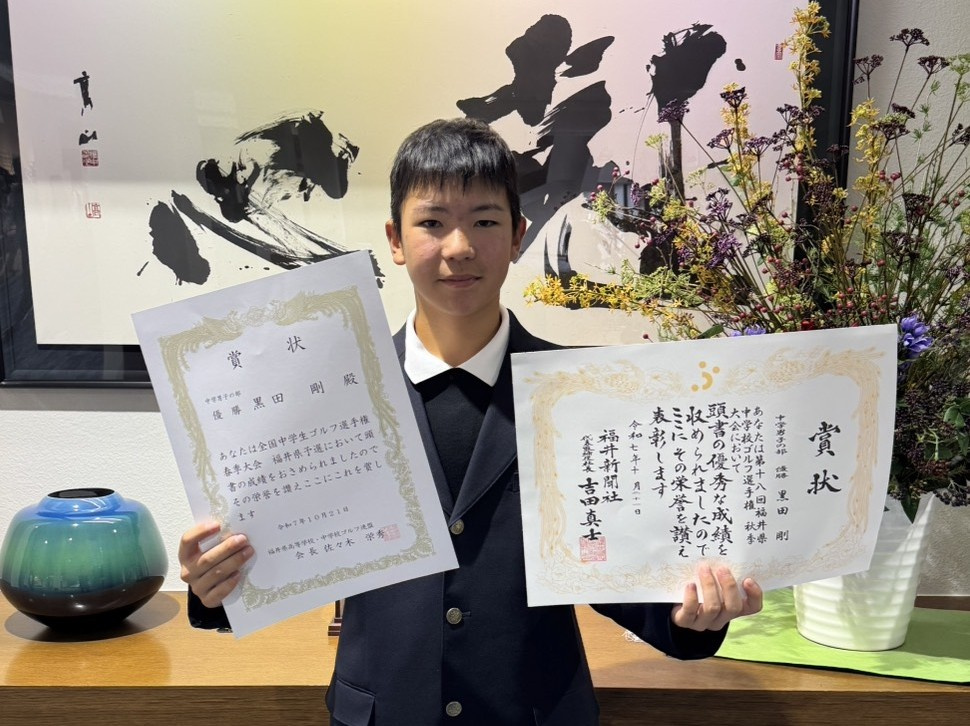 賞状
中学男子の部
優勝 黒田 剛 殿
あなたは全国中学生ゴルフ選手権
春季大会 福井県予選において頭
書の成績をおさめられましたので
その栄誉を讃えここにこれを賞し
ます
令和7年10月21日
福井県高等学校・中学校ゴルフ連盟
会長 佐々木 栄秀
賞状
中学男子の部 優勝 黒田 剛
あなたは第十八回福井県
中学校ゴルフ選手権 秋季
大会において
頭書の優秀な成績を
収められましたので
ここにその栄誉を讃え
表彰します
令和七年十月二十一日
福井新聞社
吉田真士